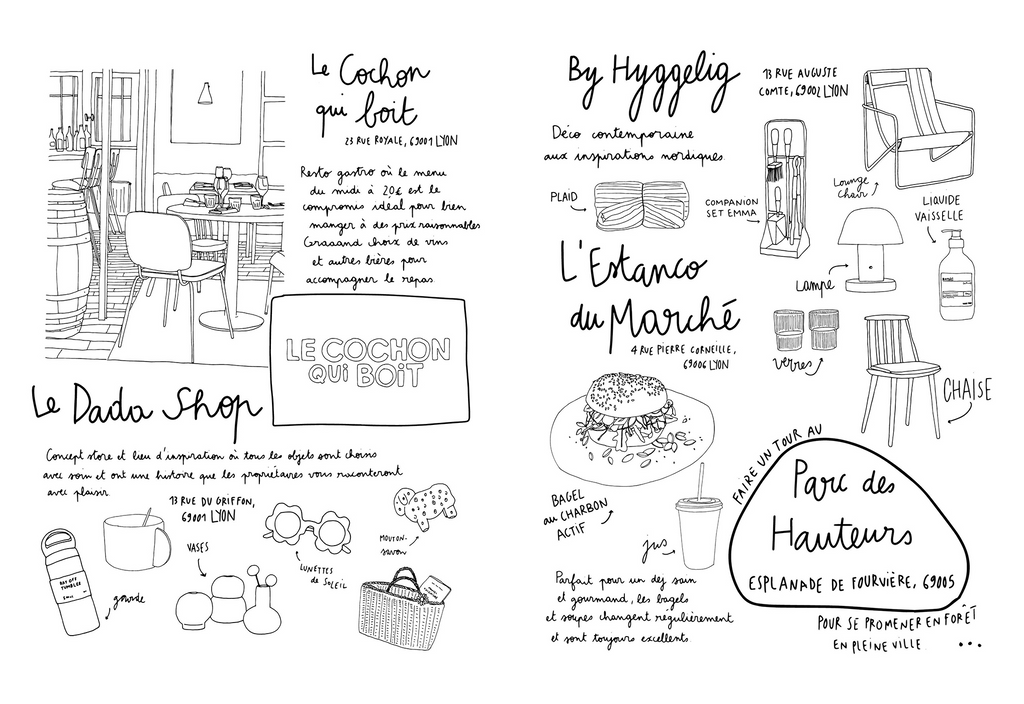 Le Cochon
qui boit
23 RUE ROYALE, 69001 LYON
Resto gastro où le menu
du midi à 20€ est le
compromis idéal pour bien
manger à des prix raisonnables
Graaand choix de vins
et autres bières pour
accompagner le repas.
LE COCHON
QUI BOIT
Le Dada Shop
Concept store et lieu d'inspiration où tous les objets sont choisis
avec soin et ont une histoire que les propriétaires vous raconteront
avec plaisir.
13 RUE DU GRIFFON,
69001 LYON
VASES
LUNETTES
de SOLEIL
MOUTON-
savon
gourde
By Hyggelig
13 RUE AUGUSTE
COMTE, 69002 LYON
Déco contemporaine
aux inspirations nordiques.
PLAID
COMPANION
SET EMMA
Lounge
Chair
LIQUIDE
VAISSELLE
Lampe
verres
CHAISE
L'Estanco
du Marché
4 RUE PIERRE CORNEILLE,
69006 LYON
BAGEL
au CHARBON
ACTIF
jus
Parfait pour un dej sain
et gourmand, les bagels
et soupes changent régulièrement
et sont toujours excellents.
FAIRE UN TOUR AU
Parc des
Hauteurs
ESPLANADE DE FOURVIÈRE, 69005
POUR SE PROMENER EN FORÊT
EN PLEINE VILLE ...